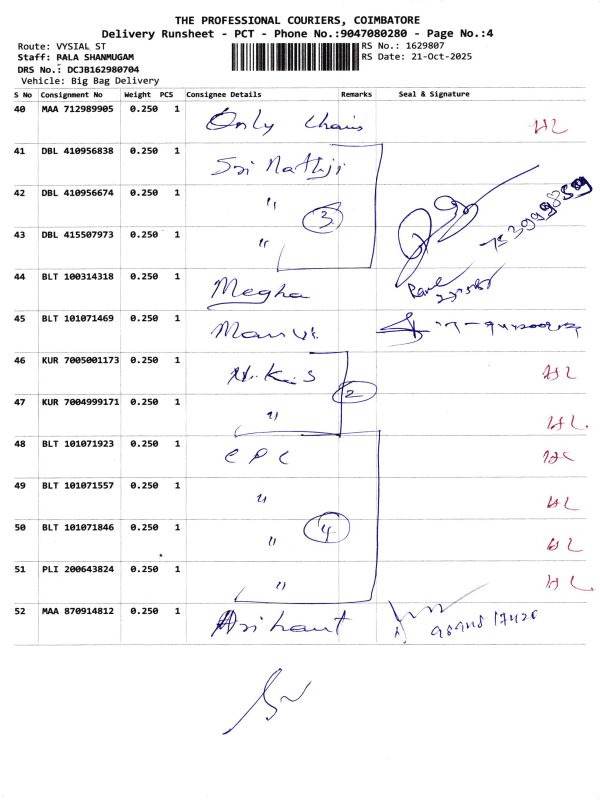 THE PROFESSIONAL COURIERS, COIMBATORE
Delivery Runsheet - PCT - Phone No.:9047080280 - Page No.:4
Route: VYSIAL ST RS No.: 1629807
Staff: BALA SHANMUGAM RS Date: 21-Oct-2025
DRS No.: DCJB162980704
Vehicle: Big Bag Delivery
S No Consignment No Weight PCS Consignee Details Remarks Seal & Signature
40 MAA 712989905 0.250 1 Only Chains HL
41 DBL 410956838 0.250 1 Sri Nathji
42 DBL 410956674 0.250 1 " 3
43 DBL 415507973 0.250 1 "
44 BLT 100314318 0.250 1 Megha
45 BLT 101071469 0.250 1
46 KUR 7005001173 0.250 1 HL
47 KUR 7004999171 0.250 1 " 2 HL
48 BLT 101071923 0.250 1 CPC HL
49 BLT 101071557 0.250 1 " HL
50 BLT 101071846 0.250 1 " 4 HL
51 PLI 200643824 0.250 1 " HL
52 MAA 870914812 0.250 1 Arihant